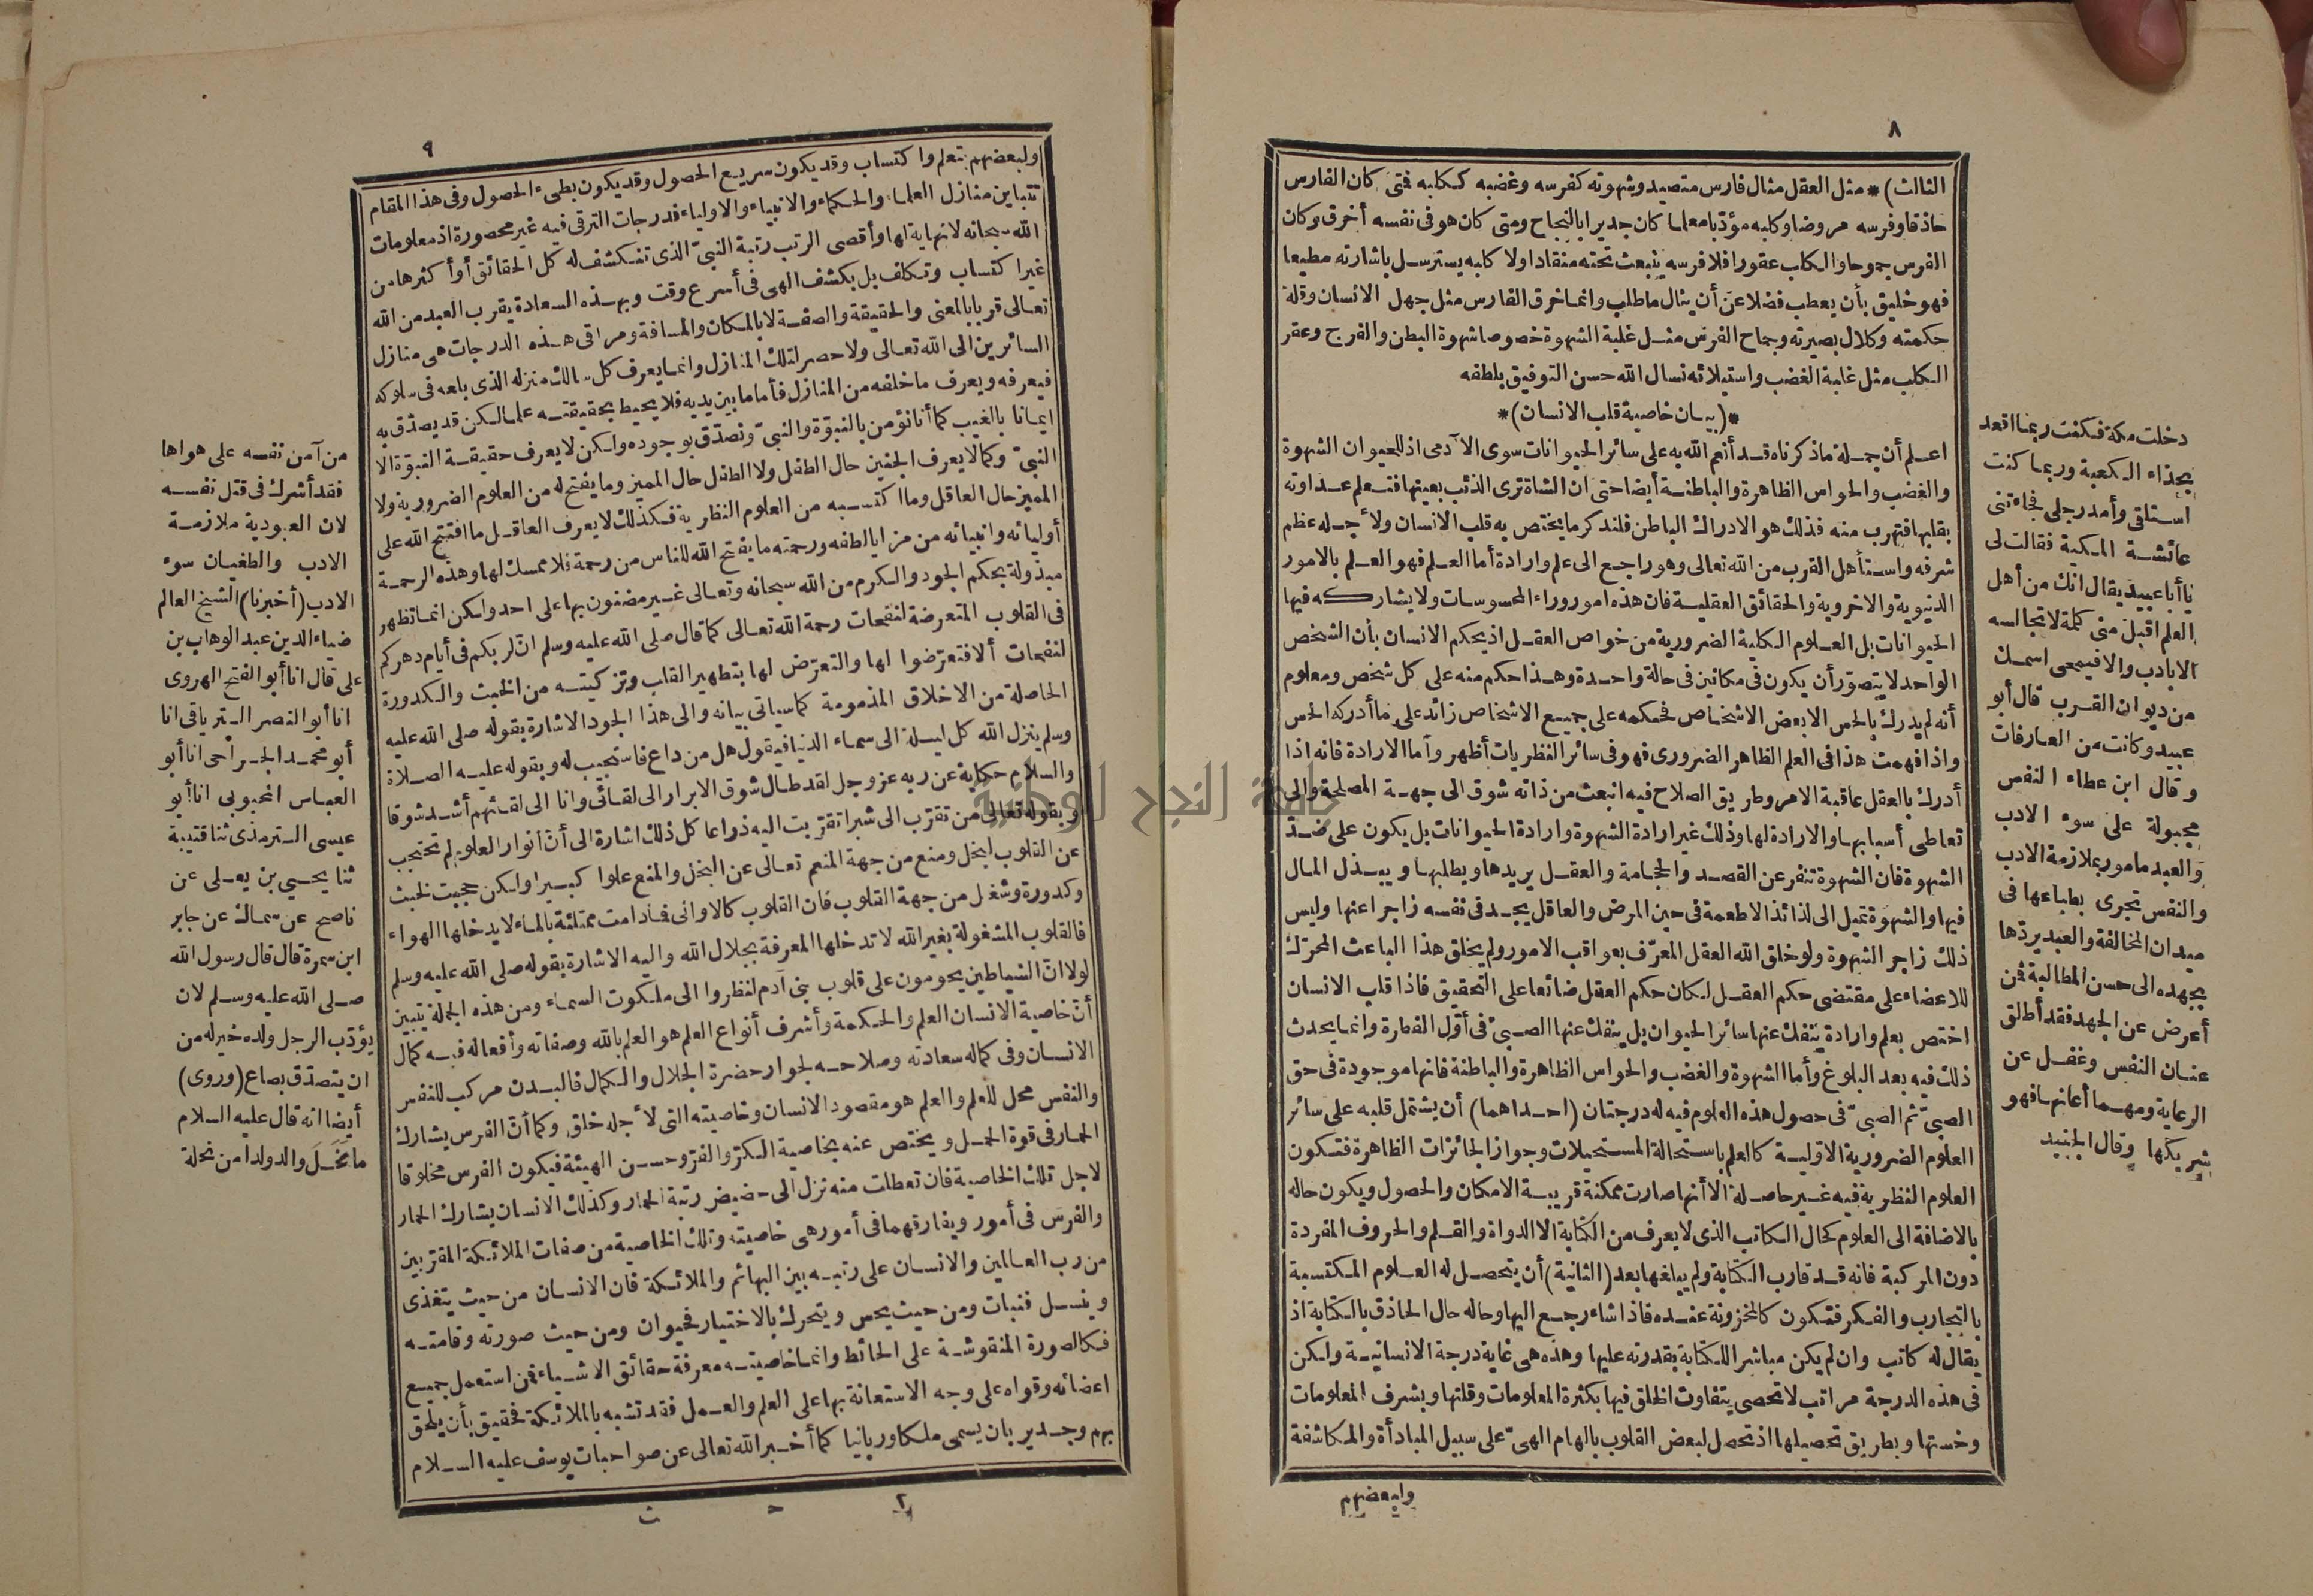 ٨
الثالث) * مثل العقل مثال فارس متصيد وشهوته كفرسه وغضبه ككلبه فتى كان الفارس
حاذقا وفرسه مروضا وكلبه مؤدبا معلما كان جديرا بالنجاح ومتى كان هو في نفسه أخرق وكان
الفرس جموحا والكلب عقورا فلا فرسه ينبعث تحته منقادا ولا كلبه يسترسل باشارته مطيعا
فهو خليق بأن يعطب فضلا عن أن ينال ما طلب وانما خرق الفارس مثل جهل الانسان وقلة
حكمته وكلال بصيرته وجماح الفرس مثل غلبة الشهوة خصوصا شهوة البطن والفرج وعقر
الكلب مثل غلبة الغضب واستيلائه نسال الله حسن التوفيق بلطفه
*(بيان خاصية قلب الانسان)*
اعلم أن جملة ماذكرناه قد أنعم الله به على سائر الحيوانات سوى الآدمى اذ للحيوان الشهوة
والغضب والحواس الظاهرة والباطنة أيضا حتى ان الشاة ترى الذئب بعينها فتعلم عداوته
بقلبها فتهرب منه فذلك هو الادراك الباطن فلنذكر ما يختص به قلب الانسان ولأجله عظم
شرفه واستأهل القرب من الله تعالى وهو راجع الى علم وارادة أما العلم فهو العلم بالامور
الدنيوية والاخروية والحقائق العقلية فان هذه امور وراء المحسوسات ولا يشاركه فيها
الحيوانات بل العلوم الكلية الضرورية من خواص العقل اذ يحكم الانسان بأن الشخص
الواحد لا يتصوّر أن يكون فى مكانين فى حالة واحدة وهذا حكم منه على كل شخص ومعلوم
أنه لم يدرك بالحس الا بعض الاشخاص فحكمه على جميع الاشخاص زائد على ما أدركه الحس
واذا فهمت هذا فى العلم الظاهر الضرورى فهو فى سائر النظريات أظهر وأما الارادة فانه اذا
أدرك بالعقل عاقبة الامر وطريق الصلاح فيه انبعث من ذاته شوق الى جهة المصلحة والى
تعاطى أسبابها والارادة لها وذلك غير ارادة الشهوة وارادة الحيوانات بل يكون على ضدّ
الشهوة فان الشهوة تنفر عن الفصد والحجامة والعقل يريدها ويطلبها ويبذل المال
فيها والشهوة تميل الى لذائذ الاطعمة فى حين المرض والعاقل يجد فى نفسه زاجرا عنها وليس
ذلك زاجر الشهوة ولو خلق الله العقل المعرّف بعواقب الامور ولم يخلق هذا الباعث المحرّك
للاعضاء على مقتضى حكم العقل لكان حكم العقل ضائعا على التحقيق فاذا قلب الانسان
اختص بعلم وارادة ينفك عنها سائر الحيوان بل ينفك عنها الصبىّ فى أوّل الفطرة وانما يحدث
ذلك فيه بعد البلوغ وأما الشهوة والغضب والحواس الظاهرة والباطنة فانها موجودة فى حق
الصبىّ ثم الصبىّ فى حصول هذه العلوم فيه له درجتان (احداهما) أن يشتمل قلبه على سائر
العلوم الضرورية الاولية كالعلم باستحالة المستحيلات وجواز الجائزات الظاهرة فتكون
العلوم النظرية فيه غير حاصلة الا أنها صارت ممكنة قريبة الامكان والحصول ويكون حاله
بالاضافة الى العلوم كحال الكاتب الذى لا يعرف من الكتابة الا الدواة والقلم والحروف المفردة
دون المركبة فانه قد قارب الكتابة ولم يبلغها بعد (الثانية) أن يتحصل له العلوم المكتسبة
بالتجارب والفكر فتكون كالمخزونة عنده فاذا شاء رجع اليها وحاله حال الحاذق بالكتابة اذ
يقال له كاتب وان لم يكن مباشرا للكتابة بقدرته عليها وهذه هى غاية درجة الانسانية ولكن
فى هذه الدرجة مراتب لا تحصى يتفاوت الخلق فيها بكثرة المعلومات وقلتها وبشرف المعلومات
وخستها وبطريق تحصيلها اذ تحصل لبعض القلوب بالهام الهىّ على سبيل المبادأة والمكاشفة
ولبعضهم
دخلت مكة فكنت ربما اقعد
بحذاء الكعبة وربما كنت
استلقى وأمد رجلى فجاءتنى
عائشة المكية فقالت لى
يا أبا عبيد يقال انك من أهل
العلم اقبل منى كلمة لا تجالسه
الا بادب والا فيمحى اسمك
من ديوان القرب قال أبو
عبيد وكانت من العارفات
وقال ابن عطاء النفس
مجبولة على سوء الادب
والعبد مامور بملازمة الادب
والنفس تجرى بطباعها فى
ميدان المخالفة والعبد يردّها
بجهده الى حسن المطالبة فمن
أعرض عن الجهد فقد أطلق
عنان النفس وغفل عن
الرعاية ومهما أعانها فهو
شريكها وقال الجنيد
٩
ولبعضهم بتعلم واكتساب وقد يكون سريع الحصول وقد يكون بطىء الحصول وفى هذا المقام
تتباين منازل العلماء والحكماء والانبياء والاولياء فدرجات الترقى فيه غير محصورة اذ معلومات
الله سبحانه لا نهاية لها وأقصى الرتب رتبة النبىّ الذى تنكشف له كل الحقائق أو أكثرها من
غير اكتساب وتكلف بل بكشف الهى فى أسرع وقت وبهذه السعادة يقرب العبد من الله
تعالى قربا بالمعنى والحقيقة والصفة لا بالمكان والمسافة ومراقى هذه الدرجات هى منازل
السائرين الى الله تعالى ولا حصر لتلك المنازل وانما يعرف كل سالك منزله الذى بلغه فى سلوكه
فيعرفه ويعرف ما خلفه من المنازل فأما ما بين يديه فلا يحيط بحقيقته علما لكن قد يصدّق به
ايمانا بالغيب كما أنا نؤمن بالنبوّة والنبىّ ونصدّق بوجوده ولكن لا يعرف حقيقة النبوّة الا
النبىّ وكما لا يعرف الجنين حال الطفل ولا الطفل حال المميز وما يفتح له من العلوم الضرورية ولا
المميز حال العاقل وما اكتسبه من العلوم النظرية فكذلك لا يعرف العاقل ما افتتح الله على
أوليائه وانبيائه من مزايا لطفه ورحمته ما يفتح الله للناس من رحمة فلا ممسك لها وهذه الرحمة
مبذولة بحكم الجود والكرم من الله سبحانه وتعالى غير مضنون بها على احد ولكن انما تظهر
فى القلوب المتعرضة لنفحات رحمة الله تعالى كما قال صلى الله عليه وسلم انّ لربكم فى أيام دهركم
لنفحات ألا فتعرّضوا لها والتعرّض لها بتطهير القلب وتزكيته من الخبث والكدورة
الحاصلة من الاخلاق المذمومة كما سياتى بيانه والى هذا الجود الاشارة بقوله صلى الله عليه
وسلم ينزل الله كل ليلة الى سماء الدنيا فيقول هل من داع فاستجيب له وبقوله عليه الصلاة
والسلام حكاية عن ربه عز وجل لقد طال شوق الابرار الى لقائى وانا الى لقائهم أشد شوقا
وبقوله تعالى من تقرّب الى شبرا تقرّبت اليه ذراعا كل ذلك اشارة الى أنّ أنوار العلوم لم تحتجب
عن القلوب لبخل ومنع من جهة المنعم تعالى عن البخل والمنع علوا كبيرا ولكن حجبت لخبث
وكدورة وشغل من جهة القلوب فان القلوب كالاوانى فمادامت ممتلئة بالماء لا يدخلها الهواء
فالقلوب المشغولة بغير الله لا تدخلها المعرفة بجلال الله واليه الاشارة بقوله صلى الله عليه وسلم
لولا انّ الشياطين يحومون على قلوب بنى آدم لنظروا الى ملكوت السماء ومن هذه الجملة يتبين
أنّ خاصية الانسان العلم والحكمة وأشرف أنواع العلم هو العلم بالله وصفاته وأفعاله فبه كمال
الانسان وفى كماله سعادته وصلاحه لجوار حضرة الجلال والكمال فالبدن مركب للنفس
والنفس محل للعلم والعلم هو مقصود الانسان وخاصيته التى لأجله خلق وكما أنّ الفرس يشارك
الحمار فى قوة الحمل ويختص عنه بخاصية الكرّ والفرّ وحسن الهيئة فيكون الفرس مخلوقا
لاجل تلك الخاصية فان تعطلت منه نزل الى حضيض رتبة الحمار وكذلك الانسان يشارك الحمار
والفرس فى أمور ويفارقهما فى أمور هى خاصيته وتلك الخاصية من صفات الملائكة المقرّبين
من رب العالمين والانسان على رتبة بين البهائم والملائكة فان الانسان من حيث يتغذى
وينسل فنبات ومن حيث يحس ويتحرك بالاختيار فحيوان ومن حيث صورته وقامته
فكالصورة المنقوشة على الحائط وانما خاصيته معرفة حقائق الاشياء فمن استعمل جميع
اعضائه وقواه على وجه الاستعانة بها على العلم والعمل فقد تشبه بالملائكة فحقيق بأن يلحق
بهم وجدير بان يسمى ملكا وربانيا كما أخبر الله تعالى عن صواحبات يوسف عليه السلام
٢ ح ث
من آمن نفسه على هواها
فقد أشرك فى قتل نفسه
لان العبودية ملازمة
الادب والطغيان سوء
الادب (أخبرنا) الشيخ العالم
ضياء الدين عبد الوهاب بن
على قال انا أبو الفتح الهروى
انا أبو النصر الترياقى انا
أبو محمد الجراحى انا أبو
العباس المحبوبى انا أبو
عيسى الترمذى ثنا قتيبة
ثنا يحيى بن يعلى عن
ناصح عن سماك عن جابر
ابن سمرة قال قال رسول الله
صلى الله عليه وسلم لان
يؤدّب الرجل ولده خير له من
ان يتصدّق بصاع (وروى)
أيضا انه قال عليه السلام
ما نَحَلَ والد ولدا من نحلة
جامعة النجاح الوطنية